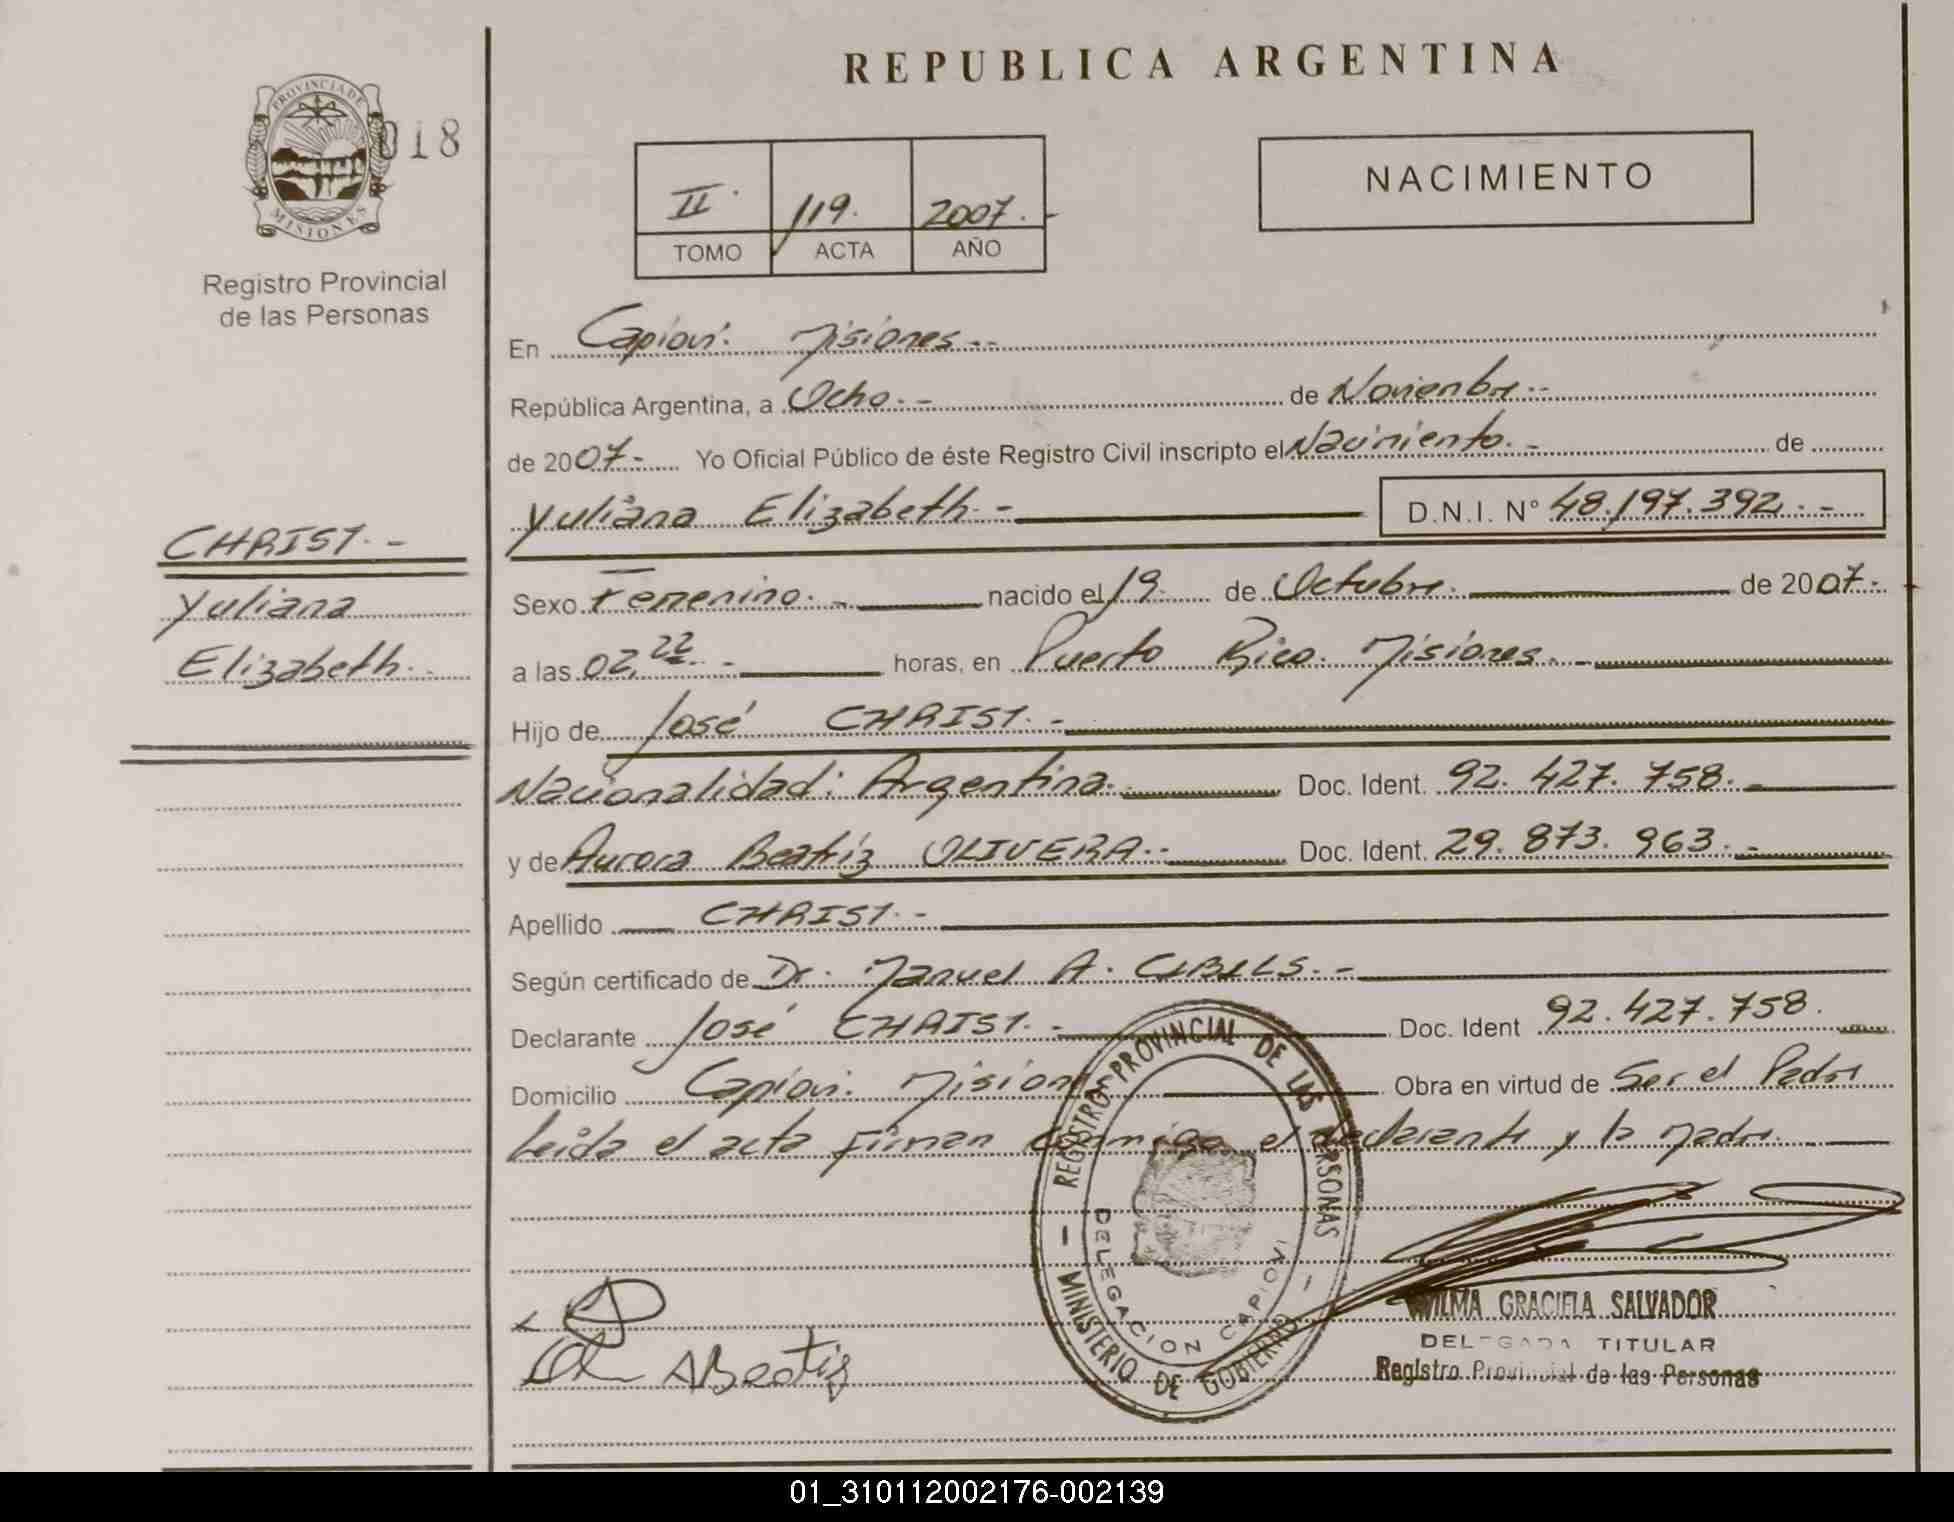 REPUBLICA ARGENTINA
PROVINCIA DE
MISIONES
018
Registro Provincial
de las Personas
II.
119.
2007.-
TOMO
ACTA
AÑO
NACIMIENTO
En Capioví. Misiones.--
República Argentina, a Ocho.- de Noviembre.--
de 2007.- Yo Oficial Público de éste Registro Civil inscripto el Nacimiento.- de
Yuliana Elizabeth.- D.N.I. N° 48.197.392.-
CHRIST.-
Yuliana
Elizabeth.-
Sexo Femenino.- nacido el 19. de Octubre. de 2007.-
a las 02,22.- horas, en Puerto Rico. Misiones.-
Hijo de José CHRIST.-
Nacionalidad: Argentina. Doc. Ident. 92.427.758.-
y de Aurora Beatríz OLIVERA.- Doc. Ident. 29.873.963.-
Apellido CHRIST.-
Según certificado de Dr. Manuel A. CIBILS.-
Declarante José CHRIST.- Doc. Ident 92.427.758.
Domicilio Capioví. Misiones Obra en virtud de Ser el Padre
Leída el acta Firman conmigo el declarante y la Madre.
REGISTRO PROVINCIAL DE LAS PERSONAS
MINISTERIO DE GOBIERNO
DELEGACION CAPIOVI
ABeatiz
WILMA GRACIELA SALVADOR
DELEGADA TITULAR
Registro Provincial de las Personas
01_310112002176-002139